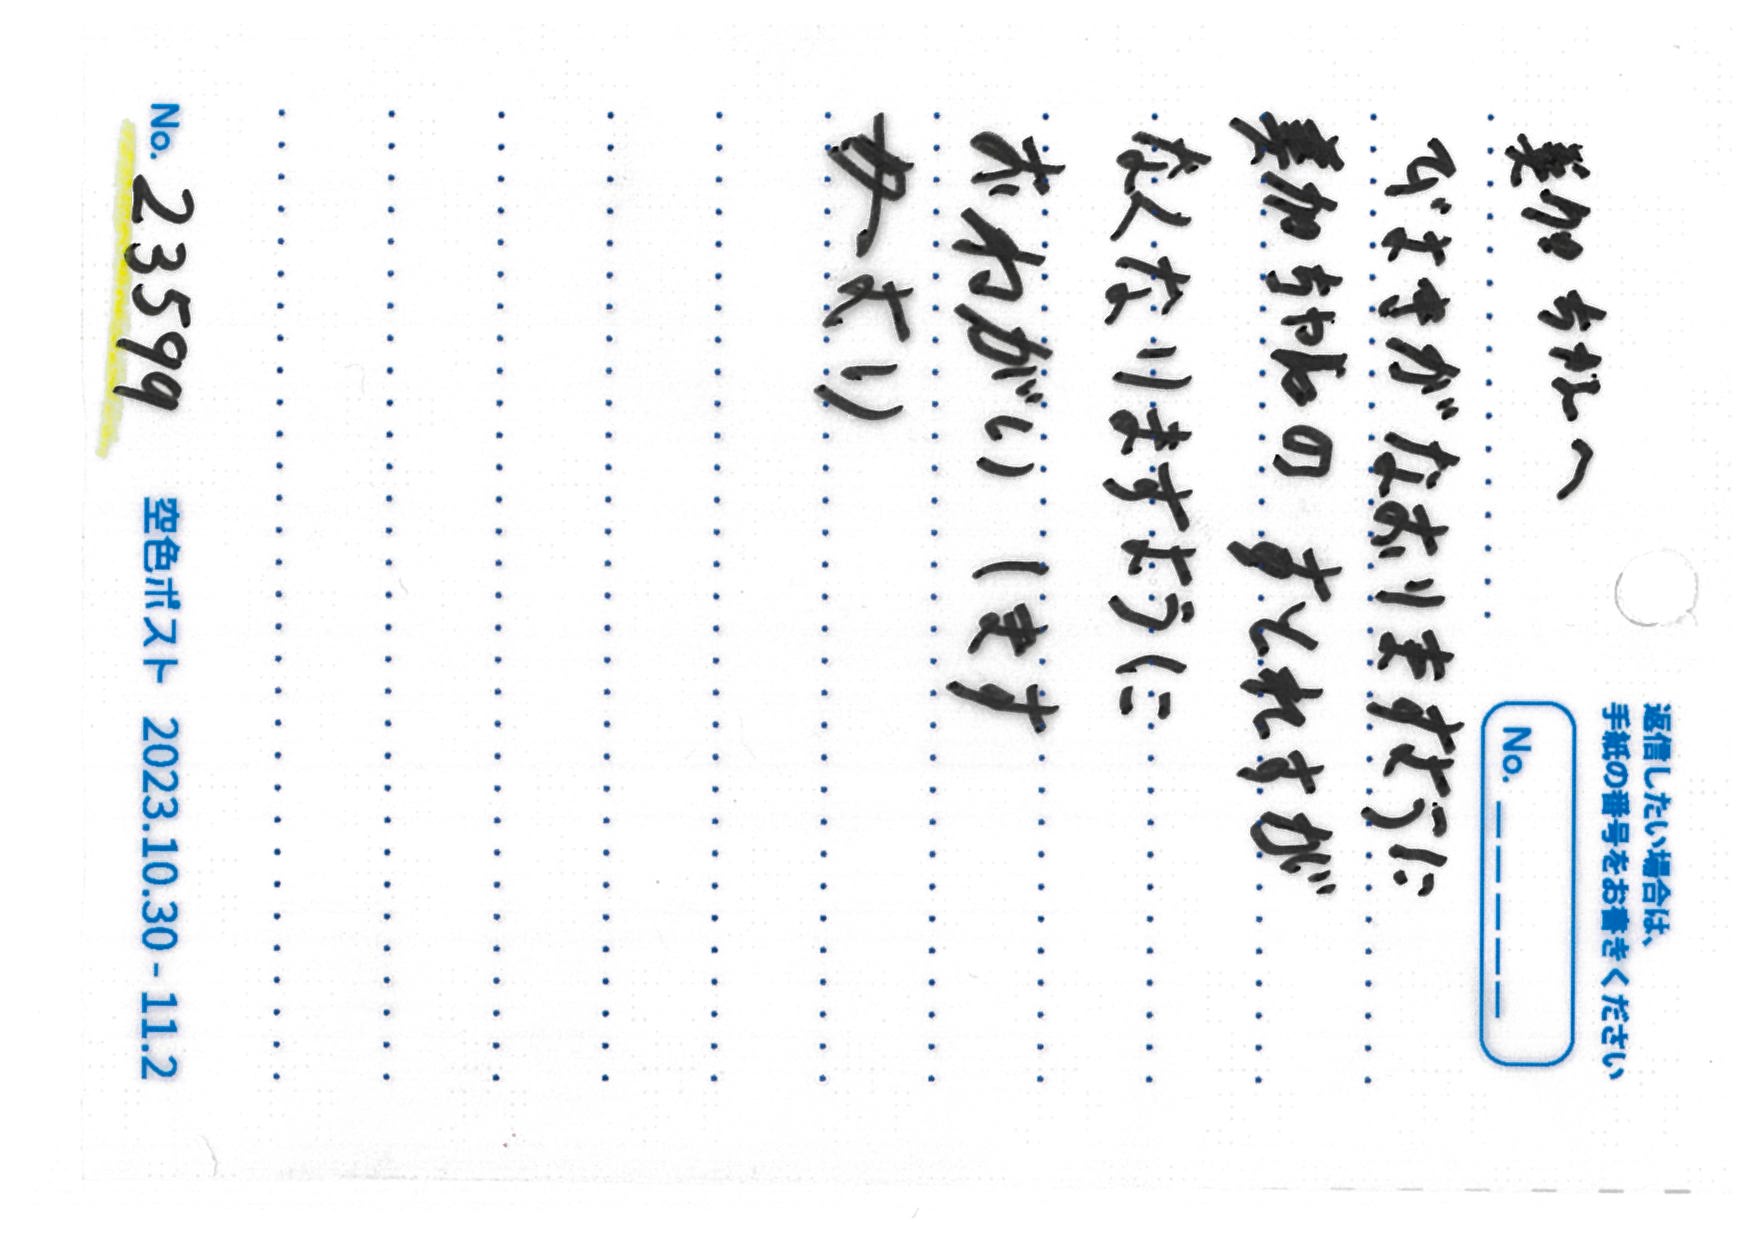 返信したい場合は、
手紙の番号をお書きください
No. _ _ _ _ _
美加ちゃんへ
びよきがなおりますように
美加ちゃんのすとれすが
なくなりますように
おねがいします
母より
No. 23599
空色ポスト 2023.10.30 - 11.2